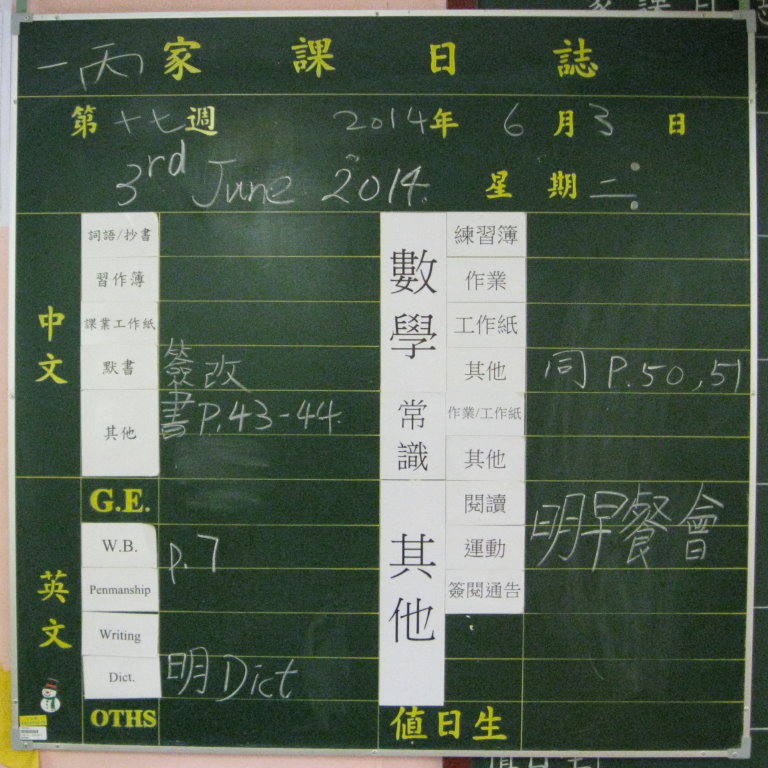 一丙 家課日誌
第十七週 2014年 6月3日
3rd June 2014. 星期二
中文
詞語/抄書
習作簿
課業工作紙
默書 簽改
其他 書P.43-44
英文
G.E.
W.B. p.7
Penmanship
Writing
Dict. 明Dict
OTHS
數學
練習簿
作業
工作紙
其他 同 P.50,51
常識
作業/工作紙
其他
其他
閱讀
運動 明早餐會
簽閱通告
值日生